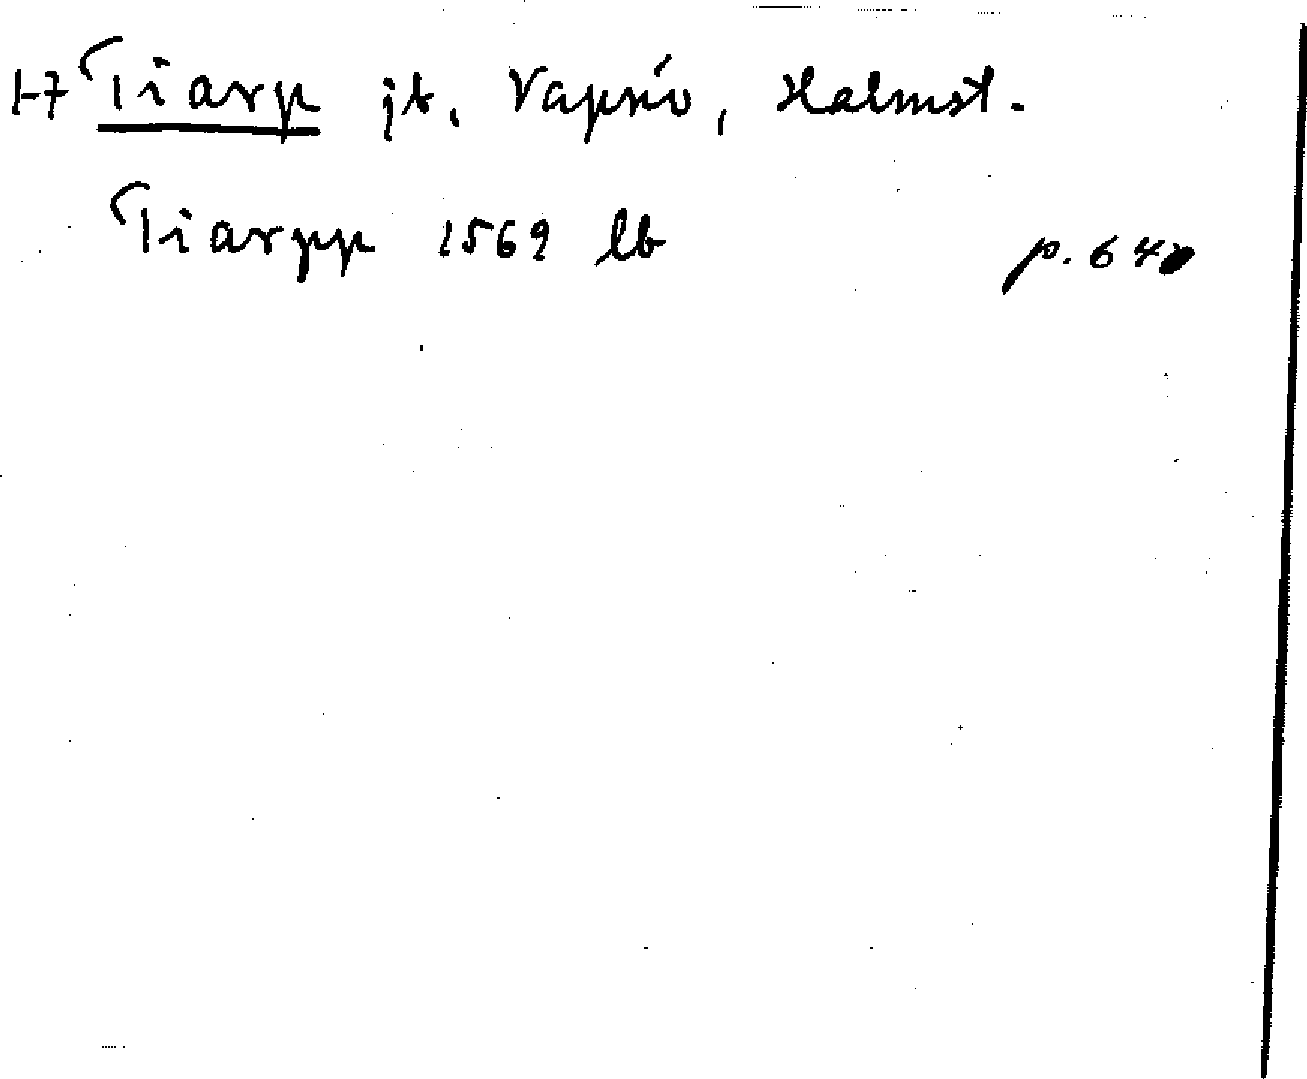 1-7 Tiarp jb, Vapnö, Halmst.
Tiarpp 1569 lb p. 64